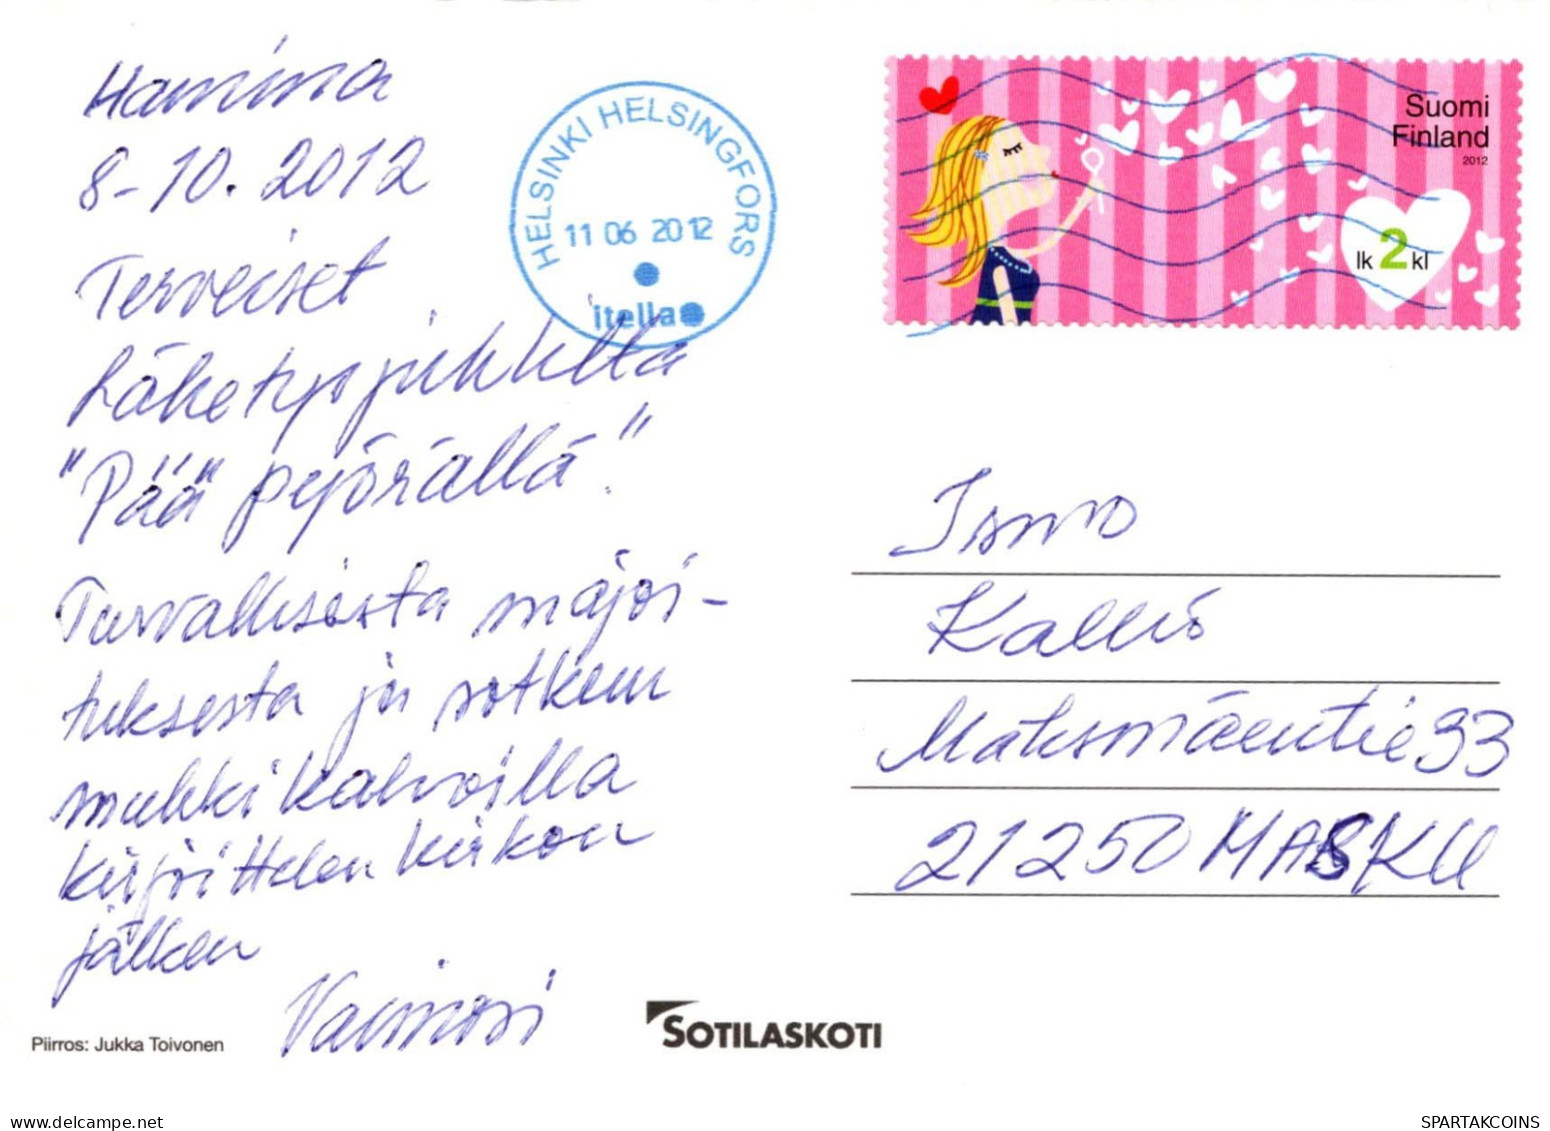 Hamina
8-10. 2012
Terveiset
Lähetysjuhlilta
"Pää pyörällä".
Turvallisesta majoi-
tuksesta ja sotkun
mukki kahvilla
kirjoittelen kirkon
jälkeen
Vaimosi
Piirros: Jukka Toivonen
HELSINKI HELSINGFORS
11 06 2012
itella
Suomi
Finland
2012
lk 2 kl
Ismo
Kallio
Maksmäentie 33
21250 MASKU
SOTILASKOTI
delcampe.net
SPARTAKCOINS